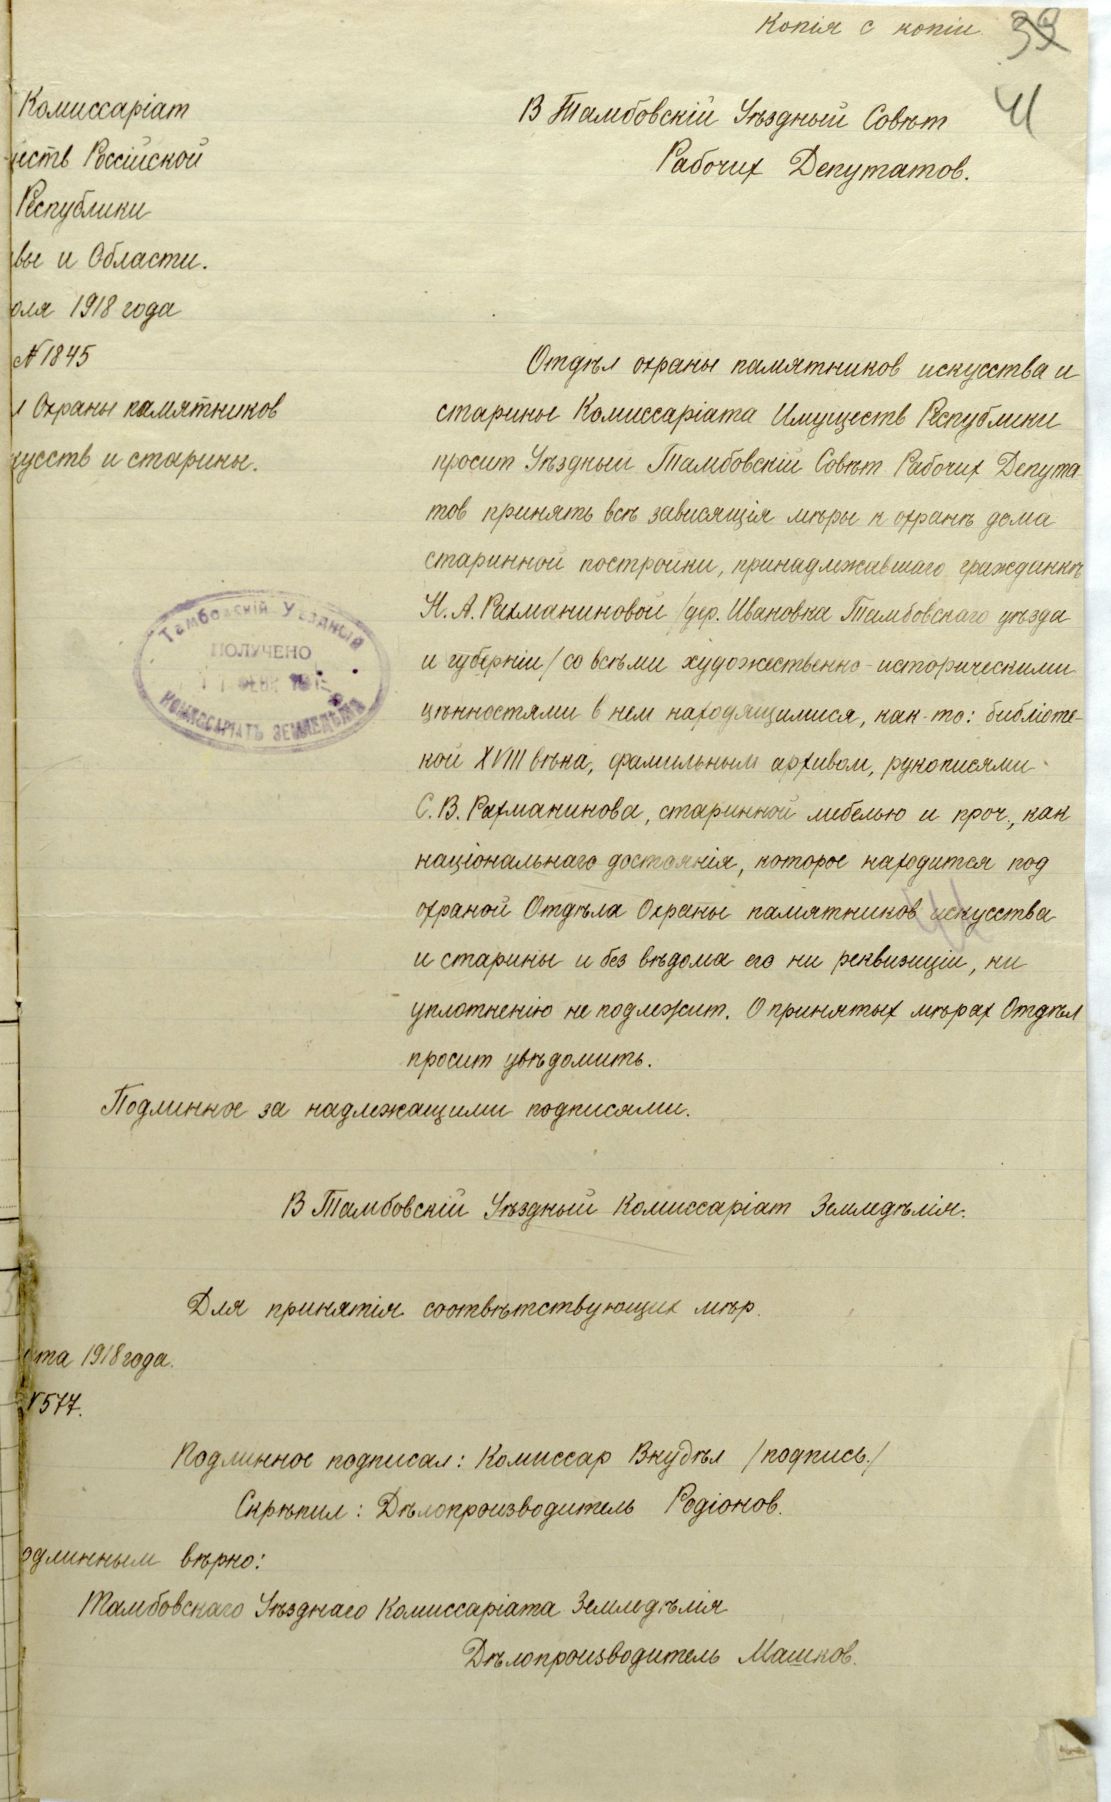 Копія с копіи
39
41
Комиссаріат
ществ Россійской
Республики
вы и Области.
юля 1918 года
№ 1845
л Охраны памятников
кусств и старины.
В Тамбовскій Уѣздный Совѣт
Рабочих Депутатов.
Отдѣл охраны памятников искусства и
старины Комиссаріата Имуществ Республики
просит Уѣздный Тамбовскій Совѣт Рабочих Депута-
тов принять всѣ зависящія мѣры к охранѣ дома
старинной постройки, принадлежавшаго гражданкѣ
Н. А. Рахманиновой /дер. Ивановка Тамбовскаго уѣзда
и губерніи/ со всѣми художественно-историческими
цѣнностями в нем находящимися, как-то: библіоте-
кой XVIII вѣка, фамильным архивом, рукописями
С. В. Рахманинова, старинной мебелью и проч., как
національнаго достоянія, которое находится под
охраной Отдѣла Охраны памятников искусства
и старины и без вѣдома его ни реквизиціи, ни
уплотненію не подлежит. О принятых мѣрах Отдѣл
просит увѣдомить.
Тамбовскій Уѣздный
ПОЛУЧЕНО
КОМИССАРІАТЪ ЗЕМЛЕДѢЛІЯ
Подлинное за надлежащими подписями.
В Тамбовскій Уѣздный Комиссаріат Земледѣлія.
Для принятія соотвѣтствующих мѣр.
ста 1918 года.
№ 577.
Подлинное подписал: Комиссар Внудѣл /подпись./
Скрѣпил: Дѣлопроизводитель Родіонов.
одлинным вѣрно:
Тамбовскаго Уѣзднаго Комиссаріата Земледѣлія
Дѣлопроизводитель Машков.